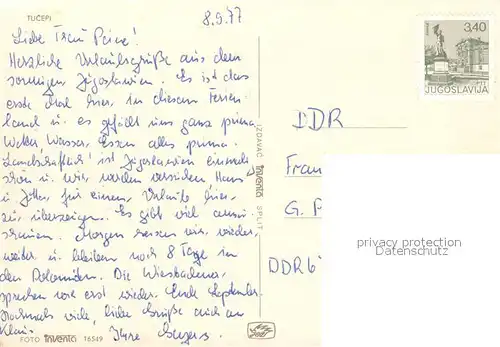 TUČEPI
8.9.77
Liebe Frau Peine!
Herzliche Urlaubsgrüße aus dem
sonnigen Jugoslawien. Es ist das
erste Mal hier, in diesem Ferien
land u. es gefällt uns ganz prima
Wetter, Wasser, Essen alles prima.
Landschaftlich ist Jugoslawien einmalig
schön u. wir werden versuchen Hans
u. Jutta für einen Urlaub hier
zu überzeugen. Es gibt viel anzu-
schauen. Morgen reisen wir wieder
weiter u. bleiben noch 8 Tage in
den Dolomiten. Die Wiesbadener
sprechen wir erst wieder Ende September.
Nochmals viele, liebe Grüße auch an
Klaus Ihre
FOTO inventa 16549
IZDAVAČ inventa SPLIT
3,40
JUGOSLAVIJA
DDR
Frau
G. P
DDR 6
privacy protection
Datenschutz